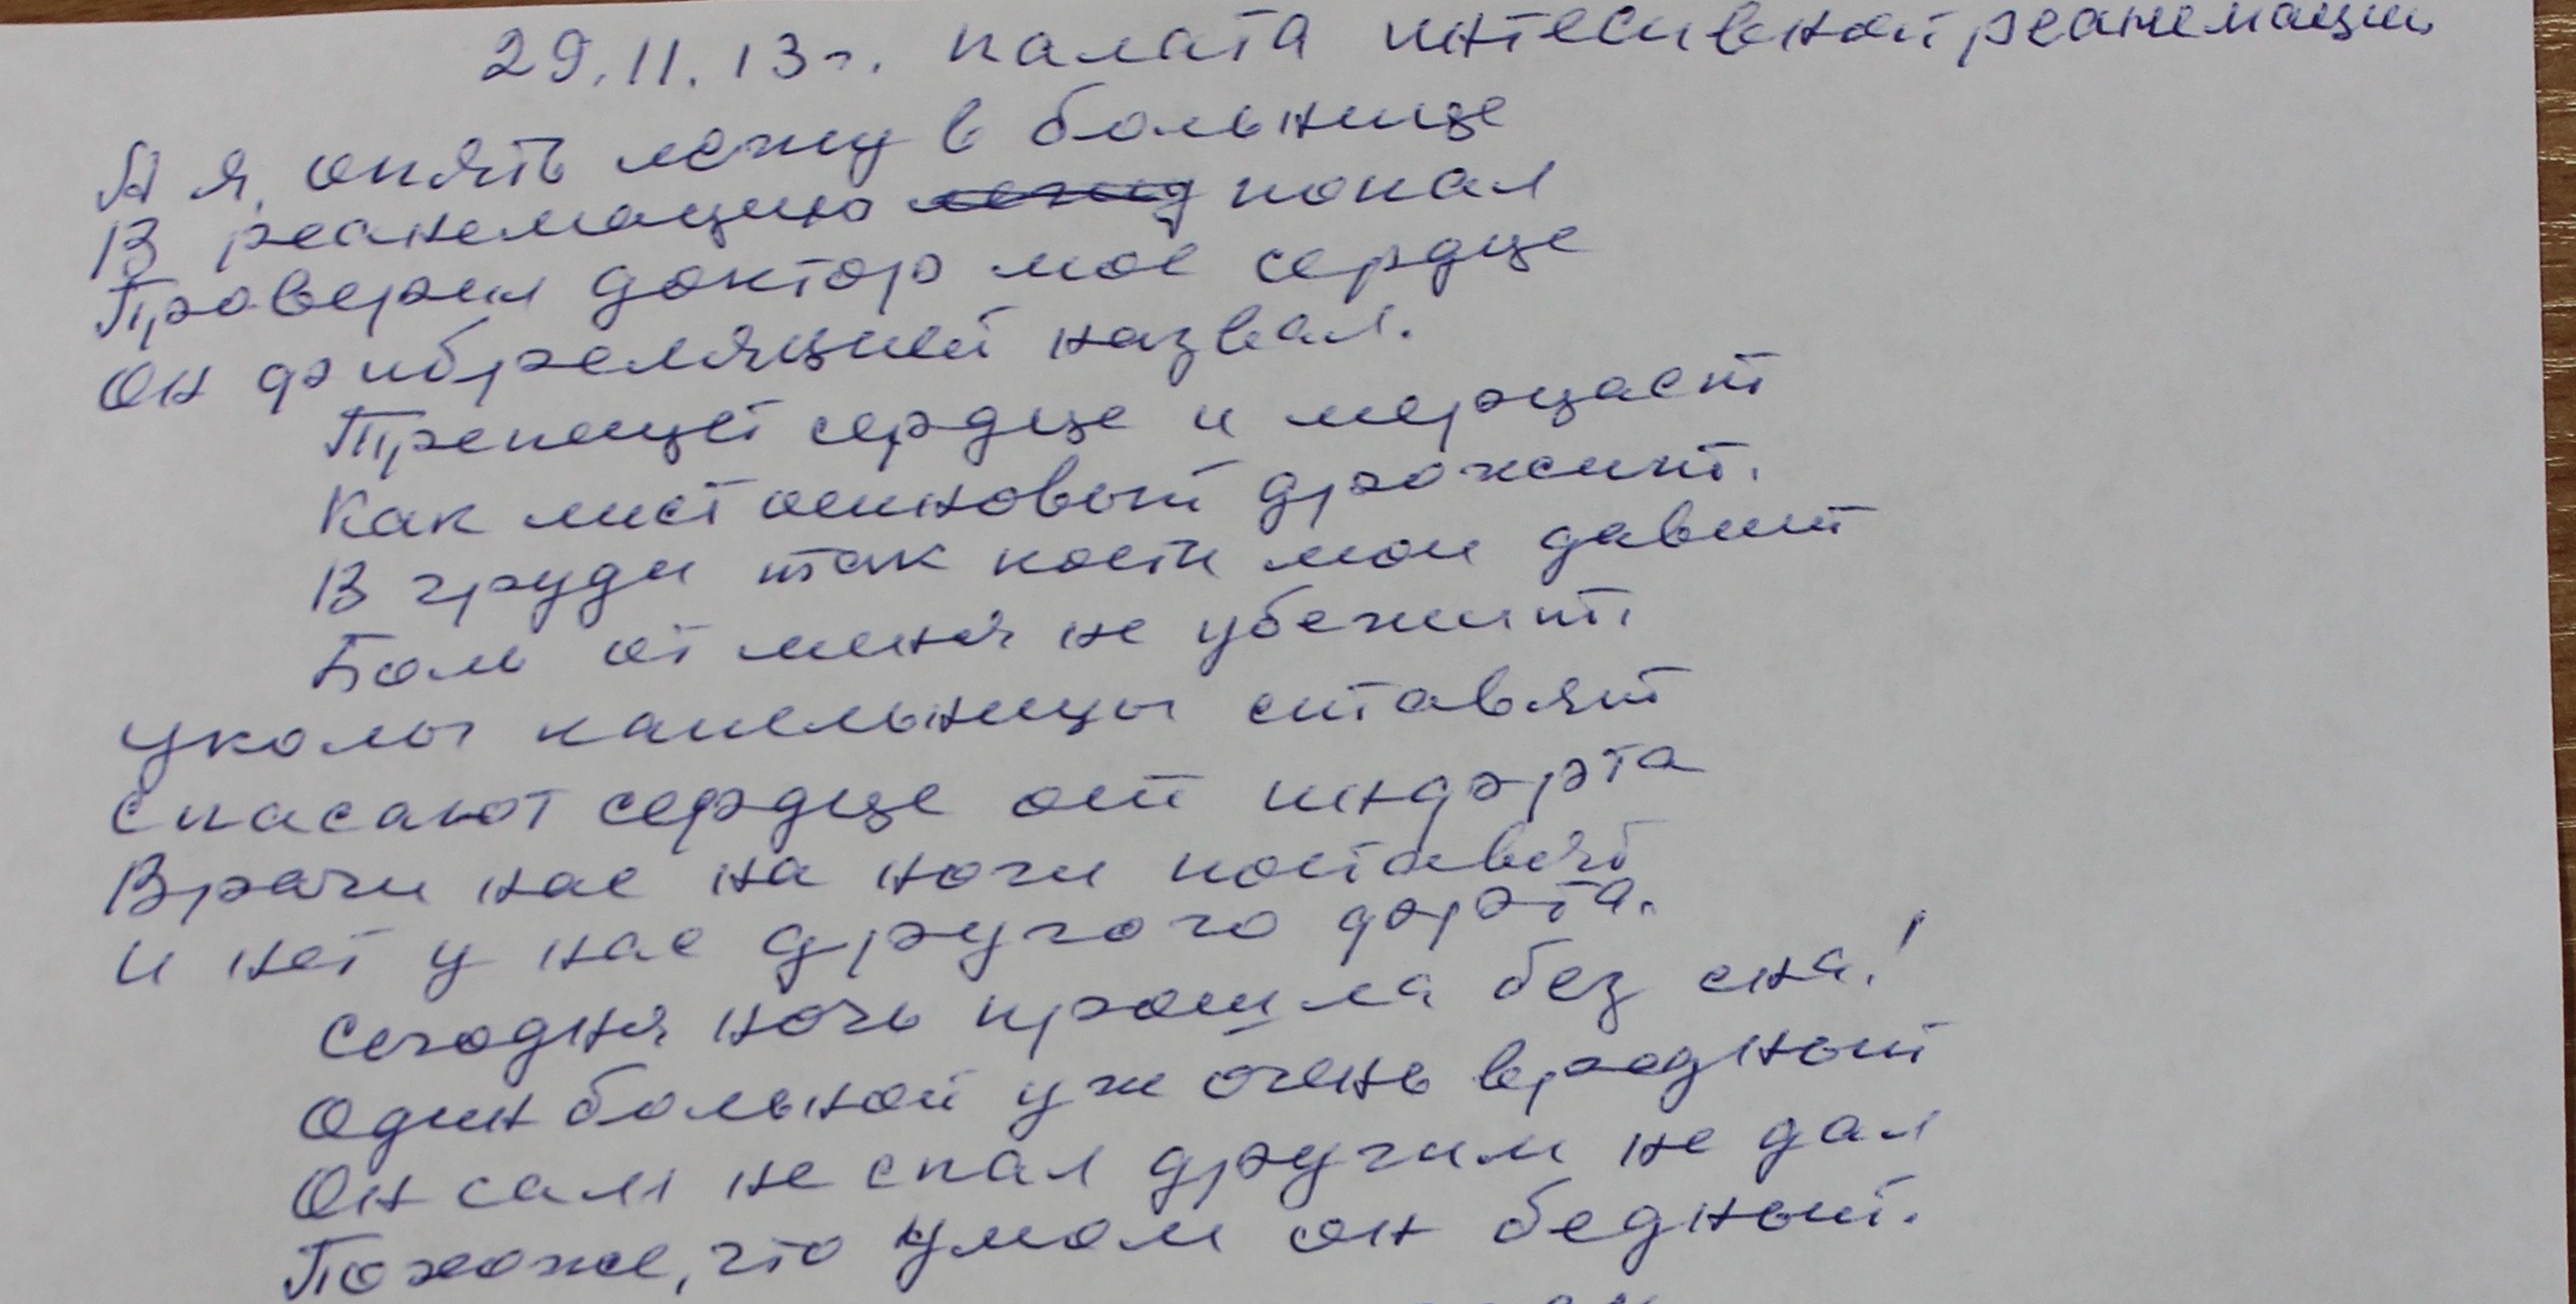 29.11.13г. палата интесивной реанемации
А я опять лежу в больнице
В реанемацию попал
Проверил доктор мое сердце
Он фибреляцией назвал.
Трепещет сердце и мерцает
Как лист осиновый дрожит.
В груди так кости мои давит
Боль от меня не убежит.
Уколы капельницы ставят
Спасают сердце от инфрта
Врачи нас на ноги поставят
И нет у нас другого фрта.
Сегодня ночь прошла без сна!
Один больной уж очень вредный
Он сам не спал другим не дал
Похоже, что умом он бедный.